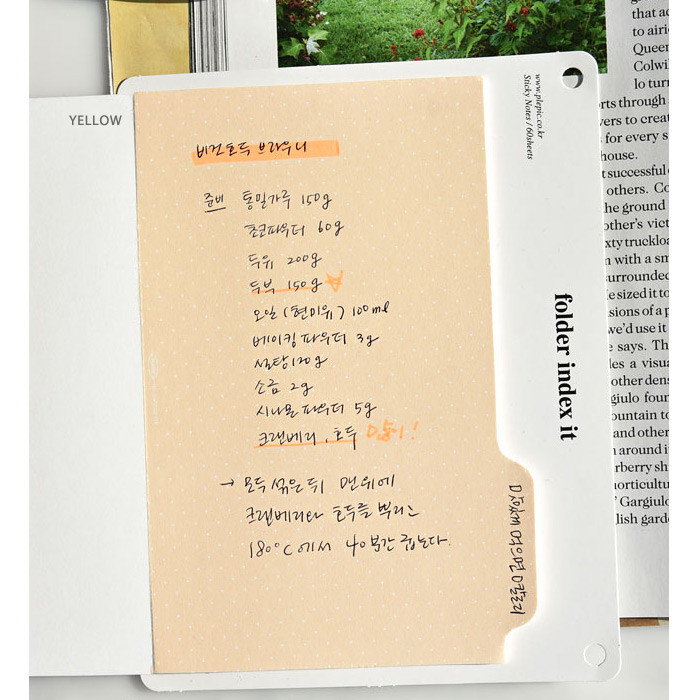 YELLOW
비건호두 브라우니
준비 통밀가루 150g
초코파우더 60g
두유 200g
두부 150g ☆
오일 (현미유) 100ml
베이킹파우더 3g
설탕 120g
소금 2g
시나몬파우더 5g
크랜베리, 호두 많이!
→ 모두 섞은 뒤 맨위에
크랜베리와 호두를 뿌리고
180°C에서 40분간 굽는다.
맛있게 먹으면 0칼로리
www.plepic.co.kr
Sticky Notes / 60sheets
folder index it
that
to
Queen
Colwi
rts through
vers to
for every
house.
successful
others.
the ground
other's
truckloa
with a
surrounded
sized it to
sions of a
we'd use it
says.
a
other
found
ountain to
and other
around
rberry
horticultu
Gargiulo
lish